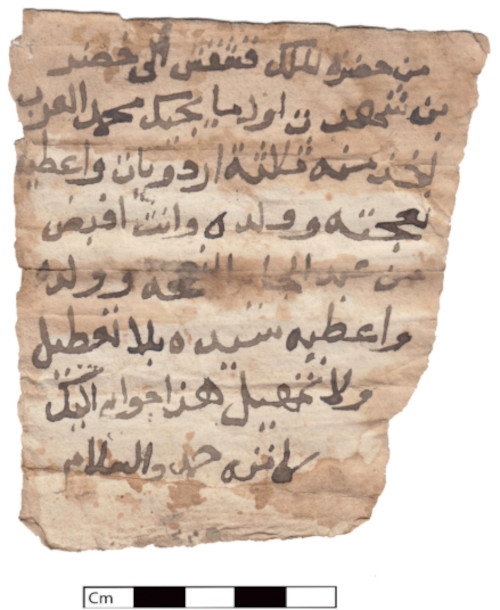 من حضرة الملك قشقش الى خضر
بن شهدت اول ما يجيك محمد العرب
تخذ منه ثلاثة اردويات واعطيه
نعجته وولده وانت اقبض
من عبد النعجه وولده
واعطيه سيده بلا تعطيل
ولا تمهيل هذا جوابى اليك
حمد والسلام